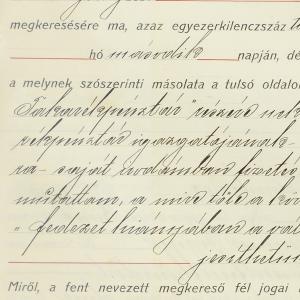 megkeresésére ma, azaz egyezerkilenczszáz
hó második napján, dé
a melynek szószerinti másolata a tulsó oldalo
Takarékpénztár" részére nek
rékpénztár igazgatójának
ra- saját irodámban fizetés
mutattam, a mire tőle a köv
„fedezet hiányjában a vál
jesíthetem
Miről, a fent nevezett megkereső fél jogai